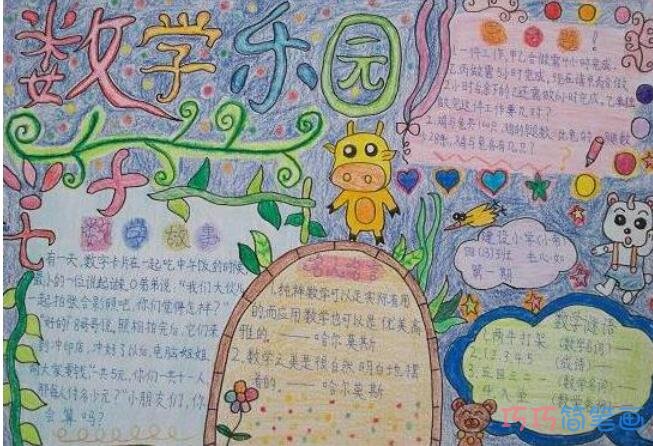 数学乐园
1.一件工作,甲乙合做需4小时完成,
乙丙做需5小时完成,现在请甲丙合做
2小时后余下的乙还需做6小时完成,乙单独
做完这件工作要几时?
2.鸡与兔共100只,鸡的腿数比兔的腿数
少28条,鸡与兔各有几只?
数学故事
有一天,数字卡片在一起吃中午饭的时候,
最小的一位说起话来,0弟弟说:“我们大伙儿
一起拍张合影吧,你们觉得怎样?”
“好的!”8哥哥说,照相拍完后,它们来
到冲印店,冲好了以后,电脑姐姐
向大家要钱,“一共5元,你们一共十一人,
那每人付多少元?”小朋友们,你
会算吗?
名人名言
1.纯粹数学可以是实际有用
的,而应用数学也可以是优美高
雅的。——哈尔莫斯
2.数学之美是很自然明白地摆
着的。——哈尔莫斯
建设小学(小布)
四(3)班 毛心如
第一期
数学谜语
1.两牛打架(数学名词)——
2.1 2 3 4 5(成语)——
巧巧简笔画